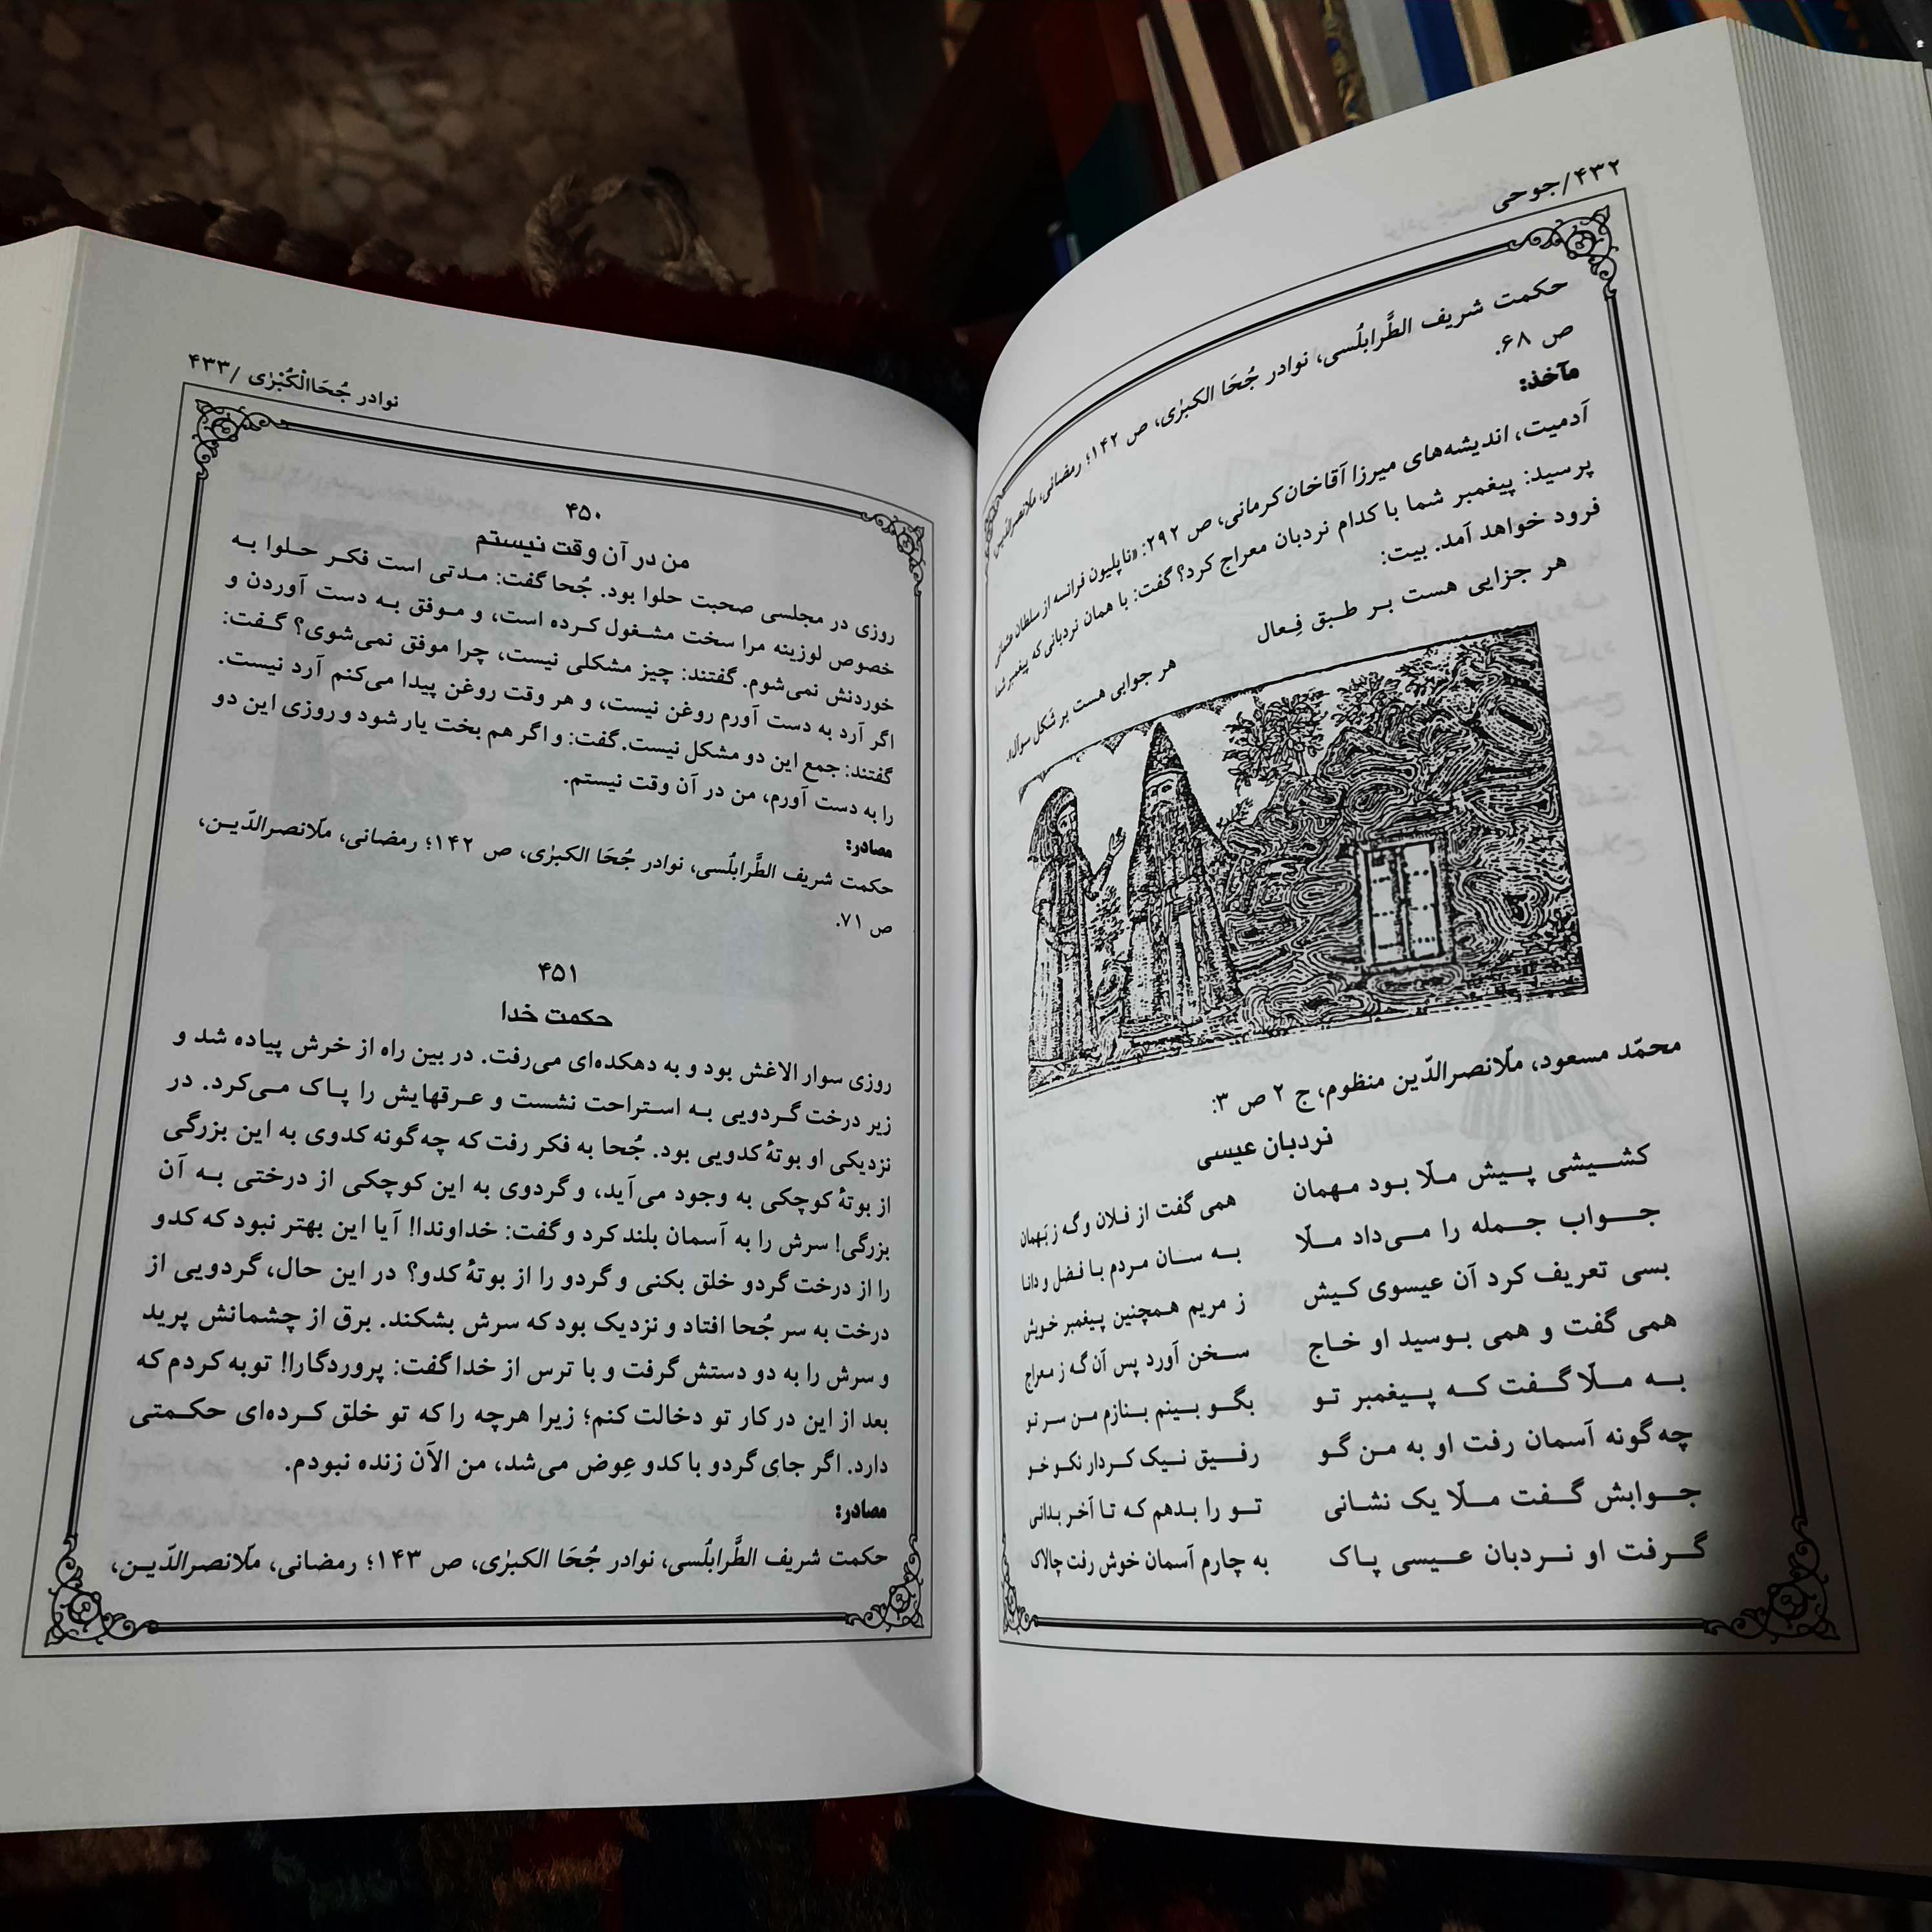 ۴۳۲/جوحی
حکمت شریف الطَّرابلُسی، نوادر جُحَا الکبرٰی، ص ۱۴۲؛ رمضانی، ملّانصرالدّین،
ص ۶۸.
مآخذ:
آدمیت، اندیشه‌های میرزا آقاخان کرمانی، ص ۲۹۲: «ناپلیون فرانسه از سلطان عثمانی
پرسید: پیغمبر شما با کدام نردبان معراج کرد؟ گفت: با همان نردبانی که پیغمبر شما
فرود خواهد آمد. بیت:
هر جزایی هست بر طبق فِعال
هر جوابی هست بر شکل سوآل».
محمّد مسعود، ملّانصرالدّین منظوم، ج ۲ ص ۳:
نردبان عیسی
کشیشی پیش ملّا بود مهمان همی گفت از فلان و گه ز بَهمان
جواب جمله را می‌داد ملّا به سان مردم با فضل و دانا
بسی تعریف کرد آن عیسوی کیش ز مریم همچنین پیغمبر خویش
همی گفت و همی بوسید او خاج سخن آورد پس آن گه ز معراج
به ملّا گفت که پیغمبر تو بگو بینم بنازم من سر تو
چه گونه آسمان رفت او به من گو رفیق نیک کردار نکو خو
جوابش گفت ملّا یک نشانی تو را بدهم که تا آخر بدانی
گرفت او نردبان عیسی پاک به چارم آسمان خوش رفت چالاک
نوادر جُحَاالْکُبْرٰی /۴۳۳
۴۵۰
من در آن وقت نیستم
روزی در مجلسی صحبت حلوا بود. جُحا گفت: مدتی است فکر حلوا به
خصوص لوزینه مرا سخت مشغول کرده است، و موفق به دست آوردن و
خوردنش نمی‌شوم. گفتند: چیز مشکلی نیست، چرا موفق نمی‌شوی؟ گفت:
اگر آرد به دست آورم روغن نیست، و هر وقت روغن پیدا می‌کنم آرد نیست.
گفتند: جمع این دو مشکل نیست. گفت: و اگر هم بخت یار شود و روزی این دو
را به دست آورم، من در آن وقت نیستم.
مصادر:
حکمت شریف الطَّرابلُسی، نوادر جُحَا الکبرٰی، ص ۱۴۲؛ رمضانی، ملّانصرالدّین،
ص ۷۱.
۴۵۱
حکمت خدا
روزی سوار الاغش بود و به دهکده‌ای می‌رفت. در بین راه از خرش پیاده شد و
زیر درخت گردویی به استراحت نشست و عرقهایش را پاک می‌کرد. در
نزدیکی او بوتهٔ کدویی بود. جُحا به فکر رفت که چه گونه کدوی به این بزرگی
از بوتهٔ کوچکی به وجود می‌آید، و گردوی به این کوچکی از درختی به آن
بزرگی! سرش را به آسمان بلند کرد و گفت: خداوندا! آیا این بهتر نبود که کدو
را از درخت گردو خلق بکنی و گردو را از بوتهٔ کدو؟ در این حال، گردویی از
درخت به سر جُحا افتاد و نزدیک بود که سرش بشکند. برق از چشمانش پرید
و سرش را به دو دستش گرفت و با ترس از خدا گفت: پروردگارا! توبه کردم که
بعد از این در کار تو دخالت کنم؛ زیرا هرچه را که تو خلق کرده‌ای حکمتی
دارد. اگر جای گردو با کدو عِوض می‌شد، من الآن زنده نبودم.
مصادر:
حکمت شریف الطَّرابلُسی، نوادر جُحَا الکبرٰی، ص ۱۴۳؛ رمضانی، ملّانصرالدّین،